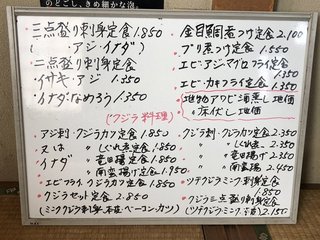 のどごし、きめ細かな泡。
三点盛り刺身定食 1.850
(　アジ・イナダ)
二点盛り刺身定食
イサキ・アジ 1.350
イナダ・なめろう 1.350
(クジラ料理)
アジ刺・クジラカツ定食 1.850
又は 〃 しぐれ煮定食 1.850
イナダ 〃 竜田揚定食 1.850
〃 南蛮揚げ定食 1.950
エビフライ・クジラカツ定食 1.850
クジラセット定食 2.850
(ミンククジラ刺身・本皮・ベーコン・カツ)
金目鯛煮つけ定食 2.100
ブリ煮つけ定食 1.550
エビ・アジ・マグロフライ定食 1.350
エビ・カキフライ定食 1.350
地物アワビ酒蒸し 地価
〃 床伏し 地価
クジラ刺・クジラカツ定食 2.350
〃 しぐれ煮 〃 2.350
〃 竜田揚げ 2.350
〃 南蛮揚 2.450
ツチクジラ・ミンク・刺身定食 1.850
クジラ三点盛り刺身定食
(ツチクジラ・ミンク・本皮) 2.150